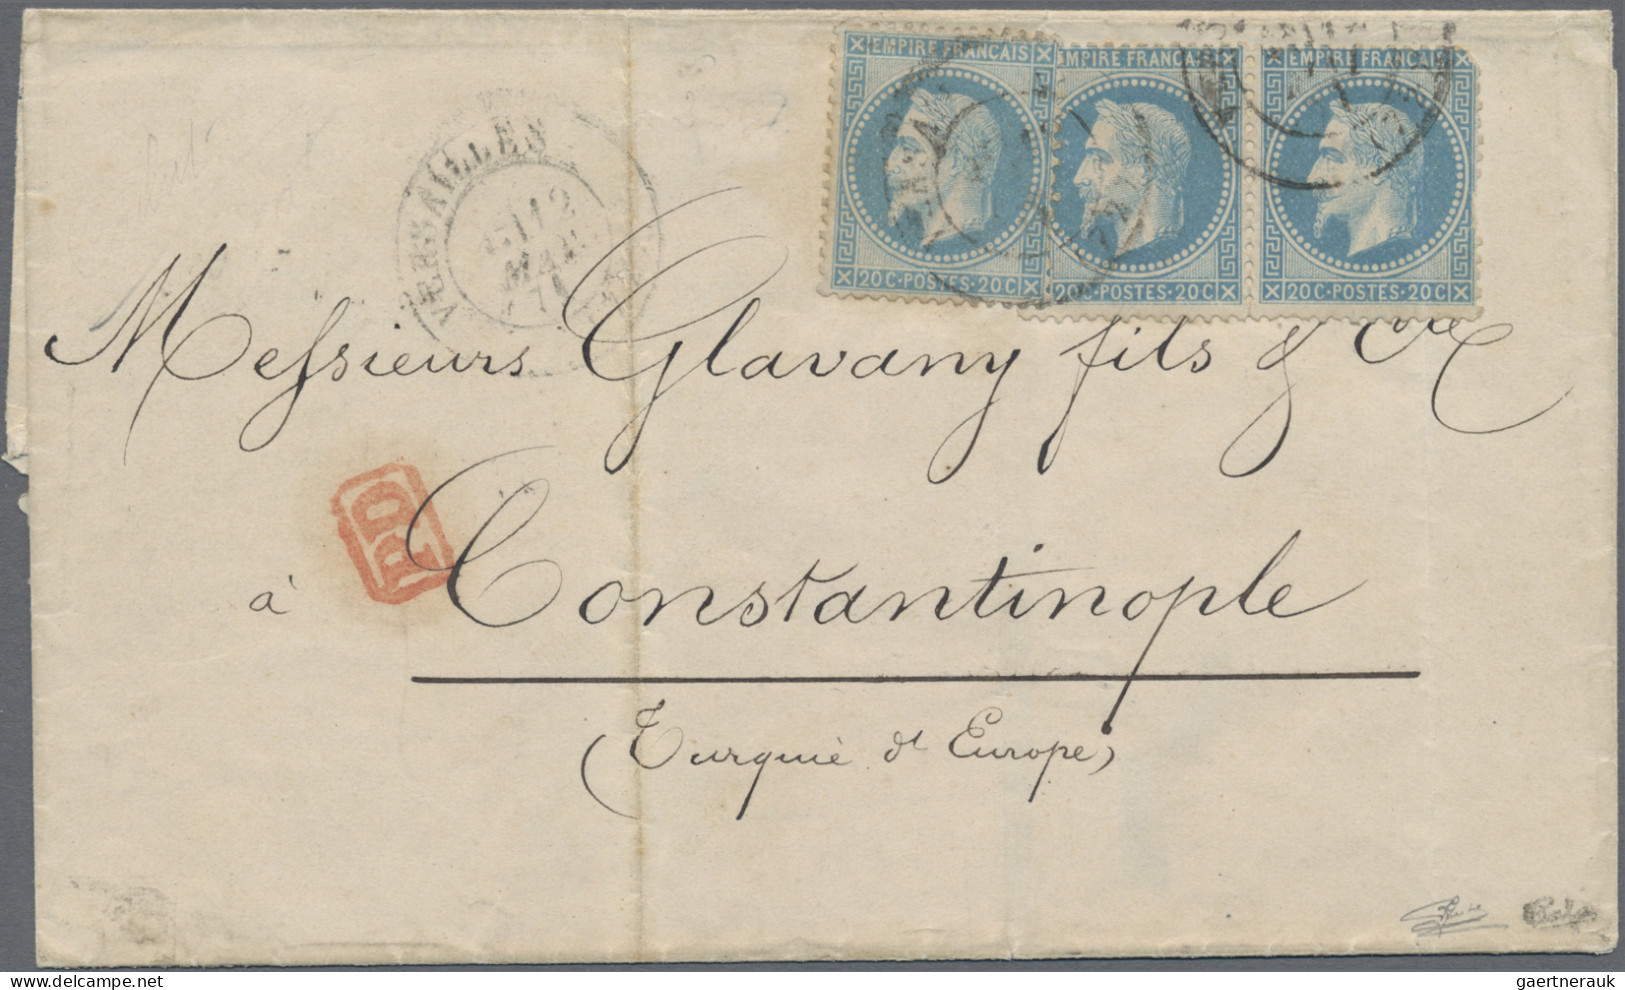 EMPIRE FRANCAIS
20 C·POSTES·20 C
EMPIRE FRANCAIS
20 C·POSTES·20 C
EMPIRE FRANCAIS
20 C·POSTES·20 C
VERSAILLES
12
MARS
71
Messieurs Glavany fils & Cie
PD
à Constantinople
(Turquie d'Europe)
gaertnerauk